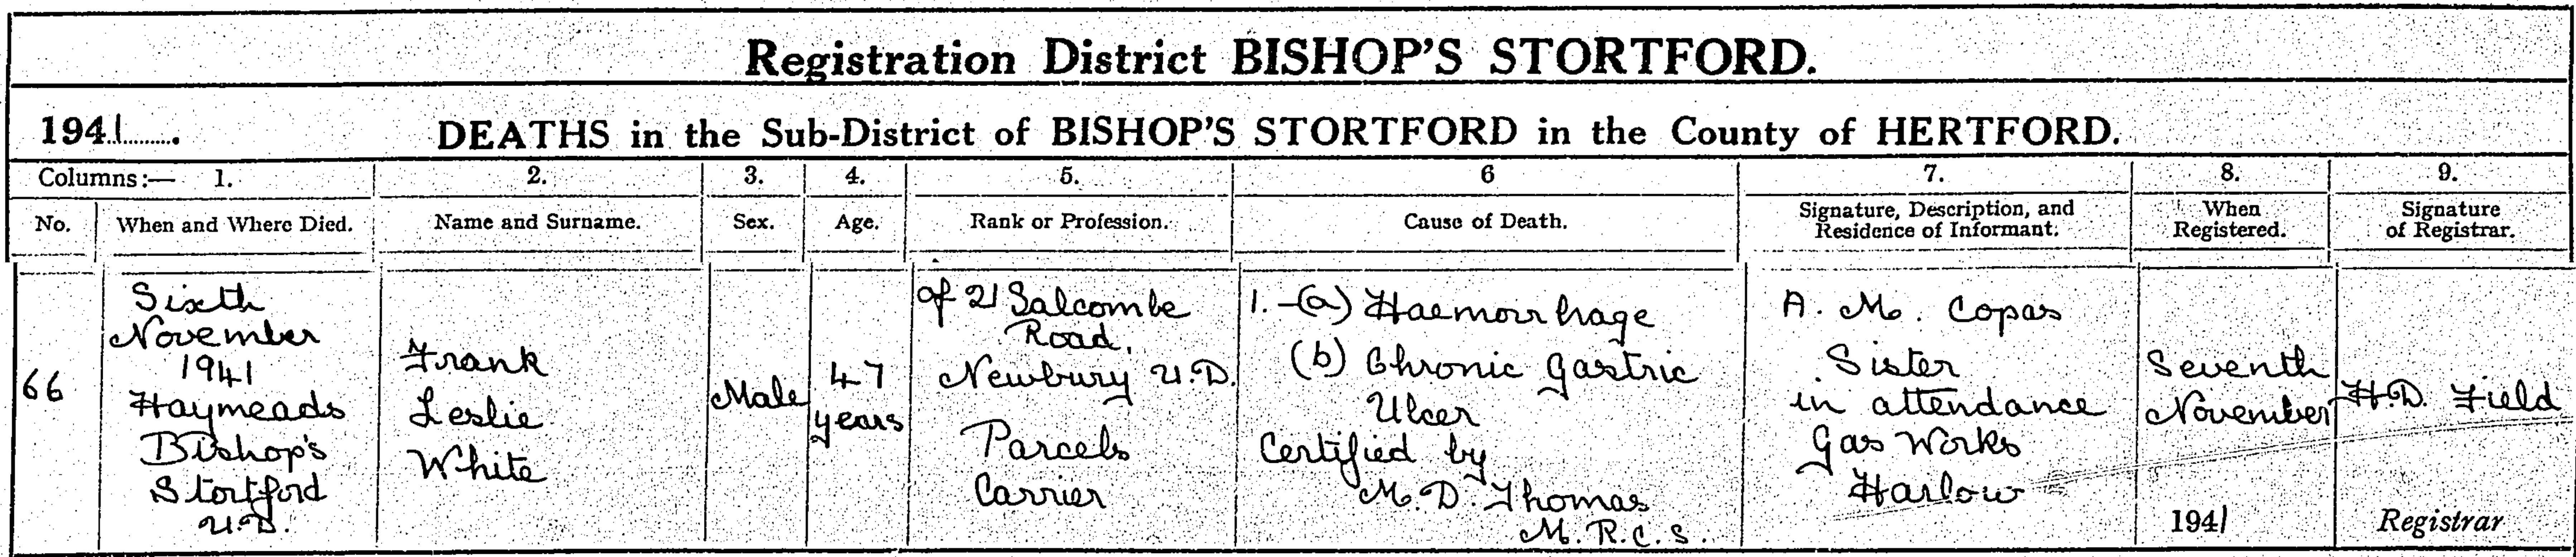 Registration District BISHOP'S STORTFORD.
1941. DEATHS in the Sub-District of BISHOP'S STORTFORD in the County of HERTFORD.
Columns:— 1. 2. 3. 4. 5. 6 7. 8. 9.
No. When and Where Died. Name and Surname. Sex. Age. Rank or Profession. Cause of Death. Signature, Description, and Residence of Informant. When Registered. Signature of Registrar.
66
Sixth
November
1941
Haymeads
Bishop's
Stortford
U.D.
Frank
Leslie
White
Male
47
years
of 21 Salcombe
Road,
Newbury U.D.
Parcels
Carrier
1.-(a) Haemorrhage
(b) Chronic Gastric
Ulcer
Certified by
M.D. Thomas
M.R.C.S.
A. M. Copas
Sister
in attendance
Gas Works
Harlow
Seventh
November
1941
H.D. Field
Registrar